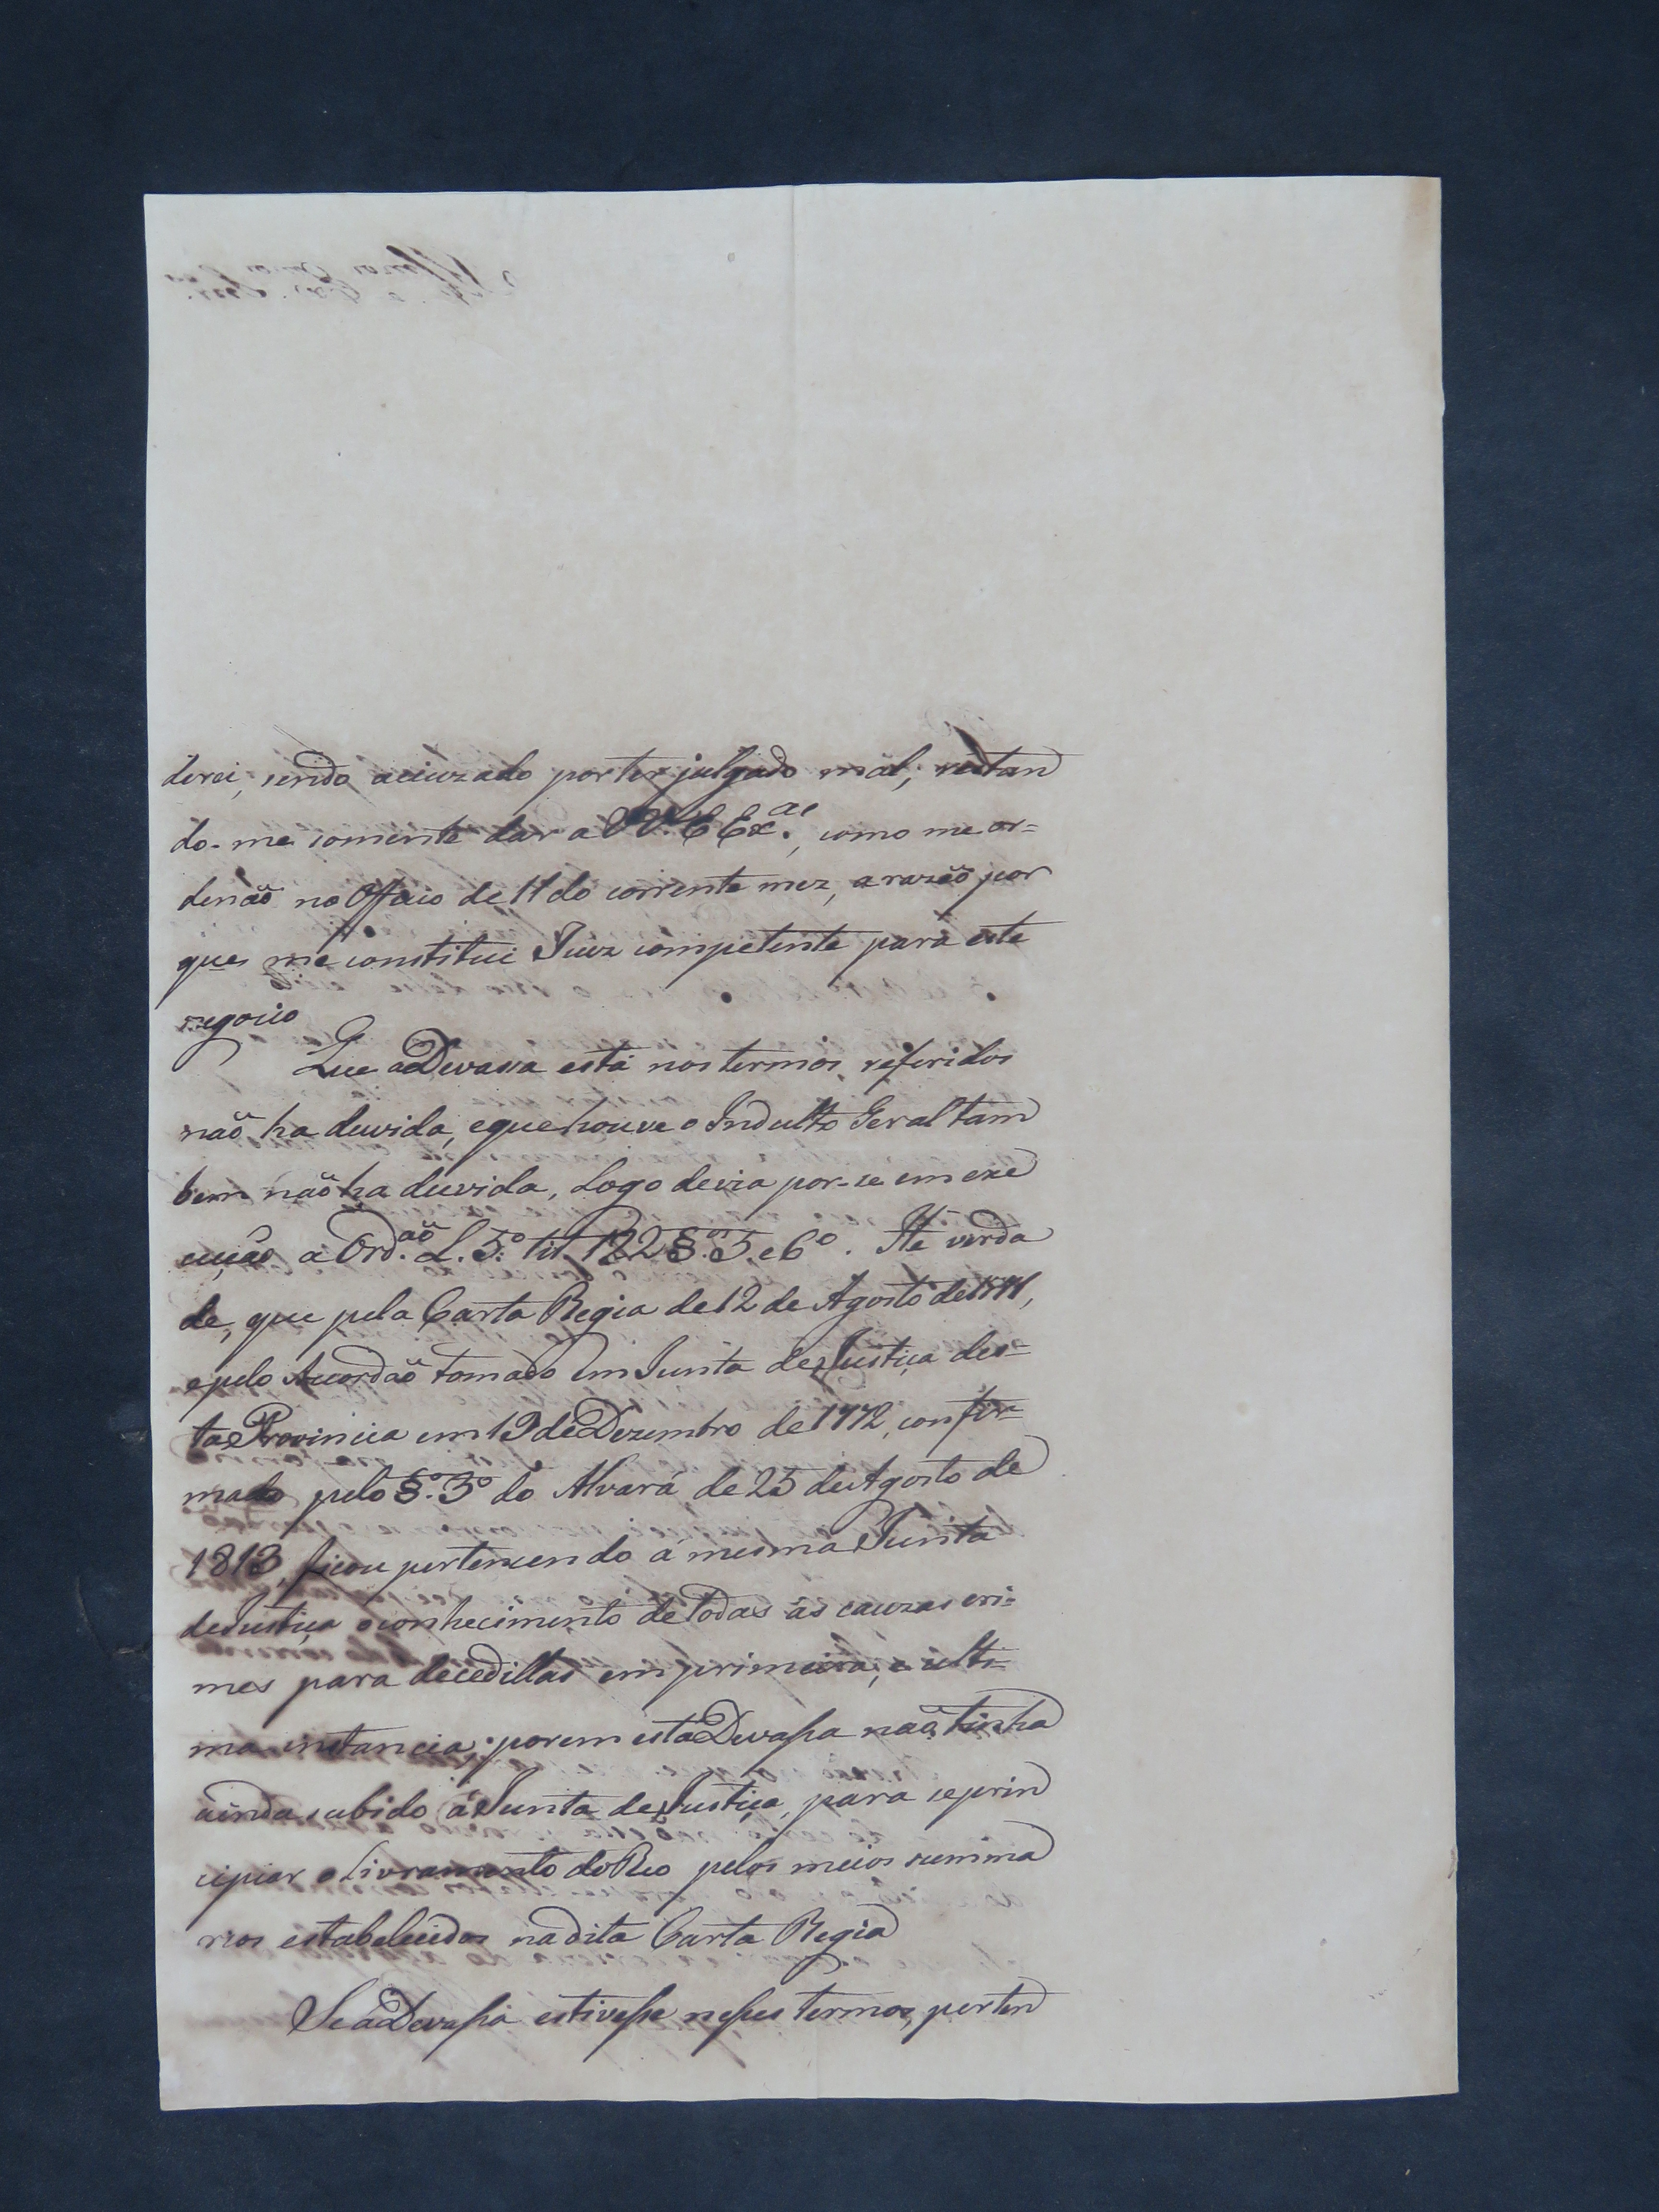 derei, sendo acuzado por ter julgado mal, restan
do-me somente dar a VV. EEx.as, como me or=
denão no Officio de 11 do corrente mez, a razão por
que me constitui Juiz competente para este
negocio
Que a Devassa está nos termos referidos
não ha duvida, e que houve o Indulto Geral tam
bem não ha duvida, Logo devia por-se em exe
cução a Ord.ão L. 5.º tit. 122 §.os 5. e 6º. He verda
de, que pela Carta Regia de 12 de Agosto de 1771,
e pelo Acordão tomado em Junta de Justiça des=
ta Provincia em 19 de Dezembro de 1772, confir=
mado pelo §.º 3º do Alvará de 25 de Agosto de
1813, ficou pertencendo á mesma Junta
de Justiça o conhecimento de todas as cauzas cri=
mes para decedillas em primeira, e ulti=
ma instancia; porem esta Devassa não tinha
ainda subido á Junta de Justiça, para se prin
cipiar o Livramento do Reo pelos meios summa
rios estabelecidos na dita Carta Regia
Se a Devassa estivesse nesses termos, perten